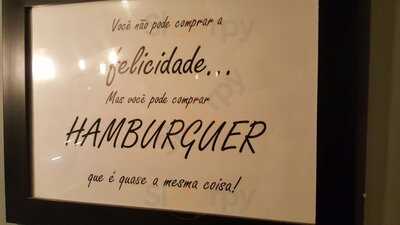 Você não pode comprar a
felicidade...
Mas você pode comprar
HAMBURGUER
que é quase a mesma coisa!